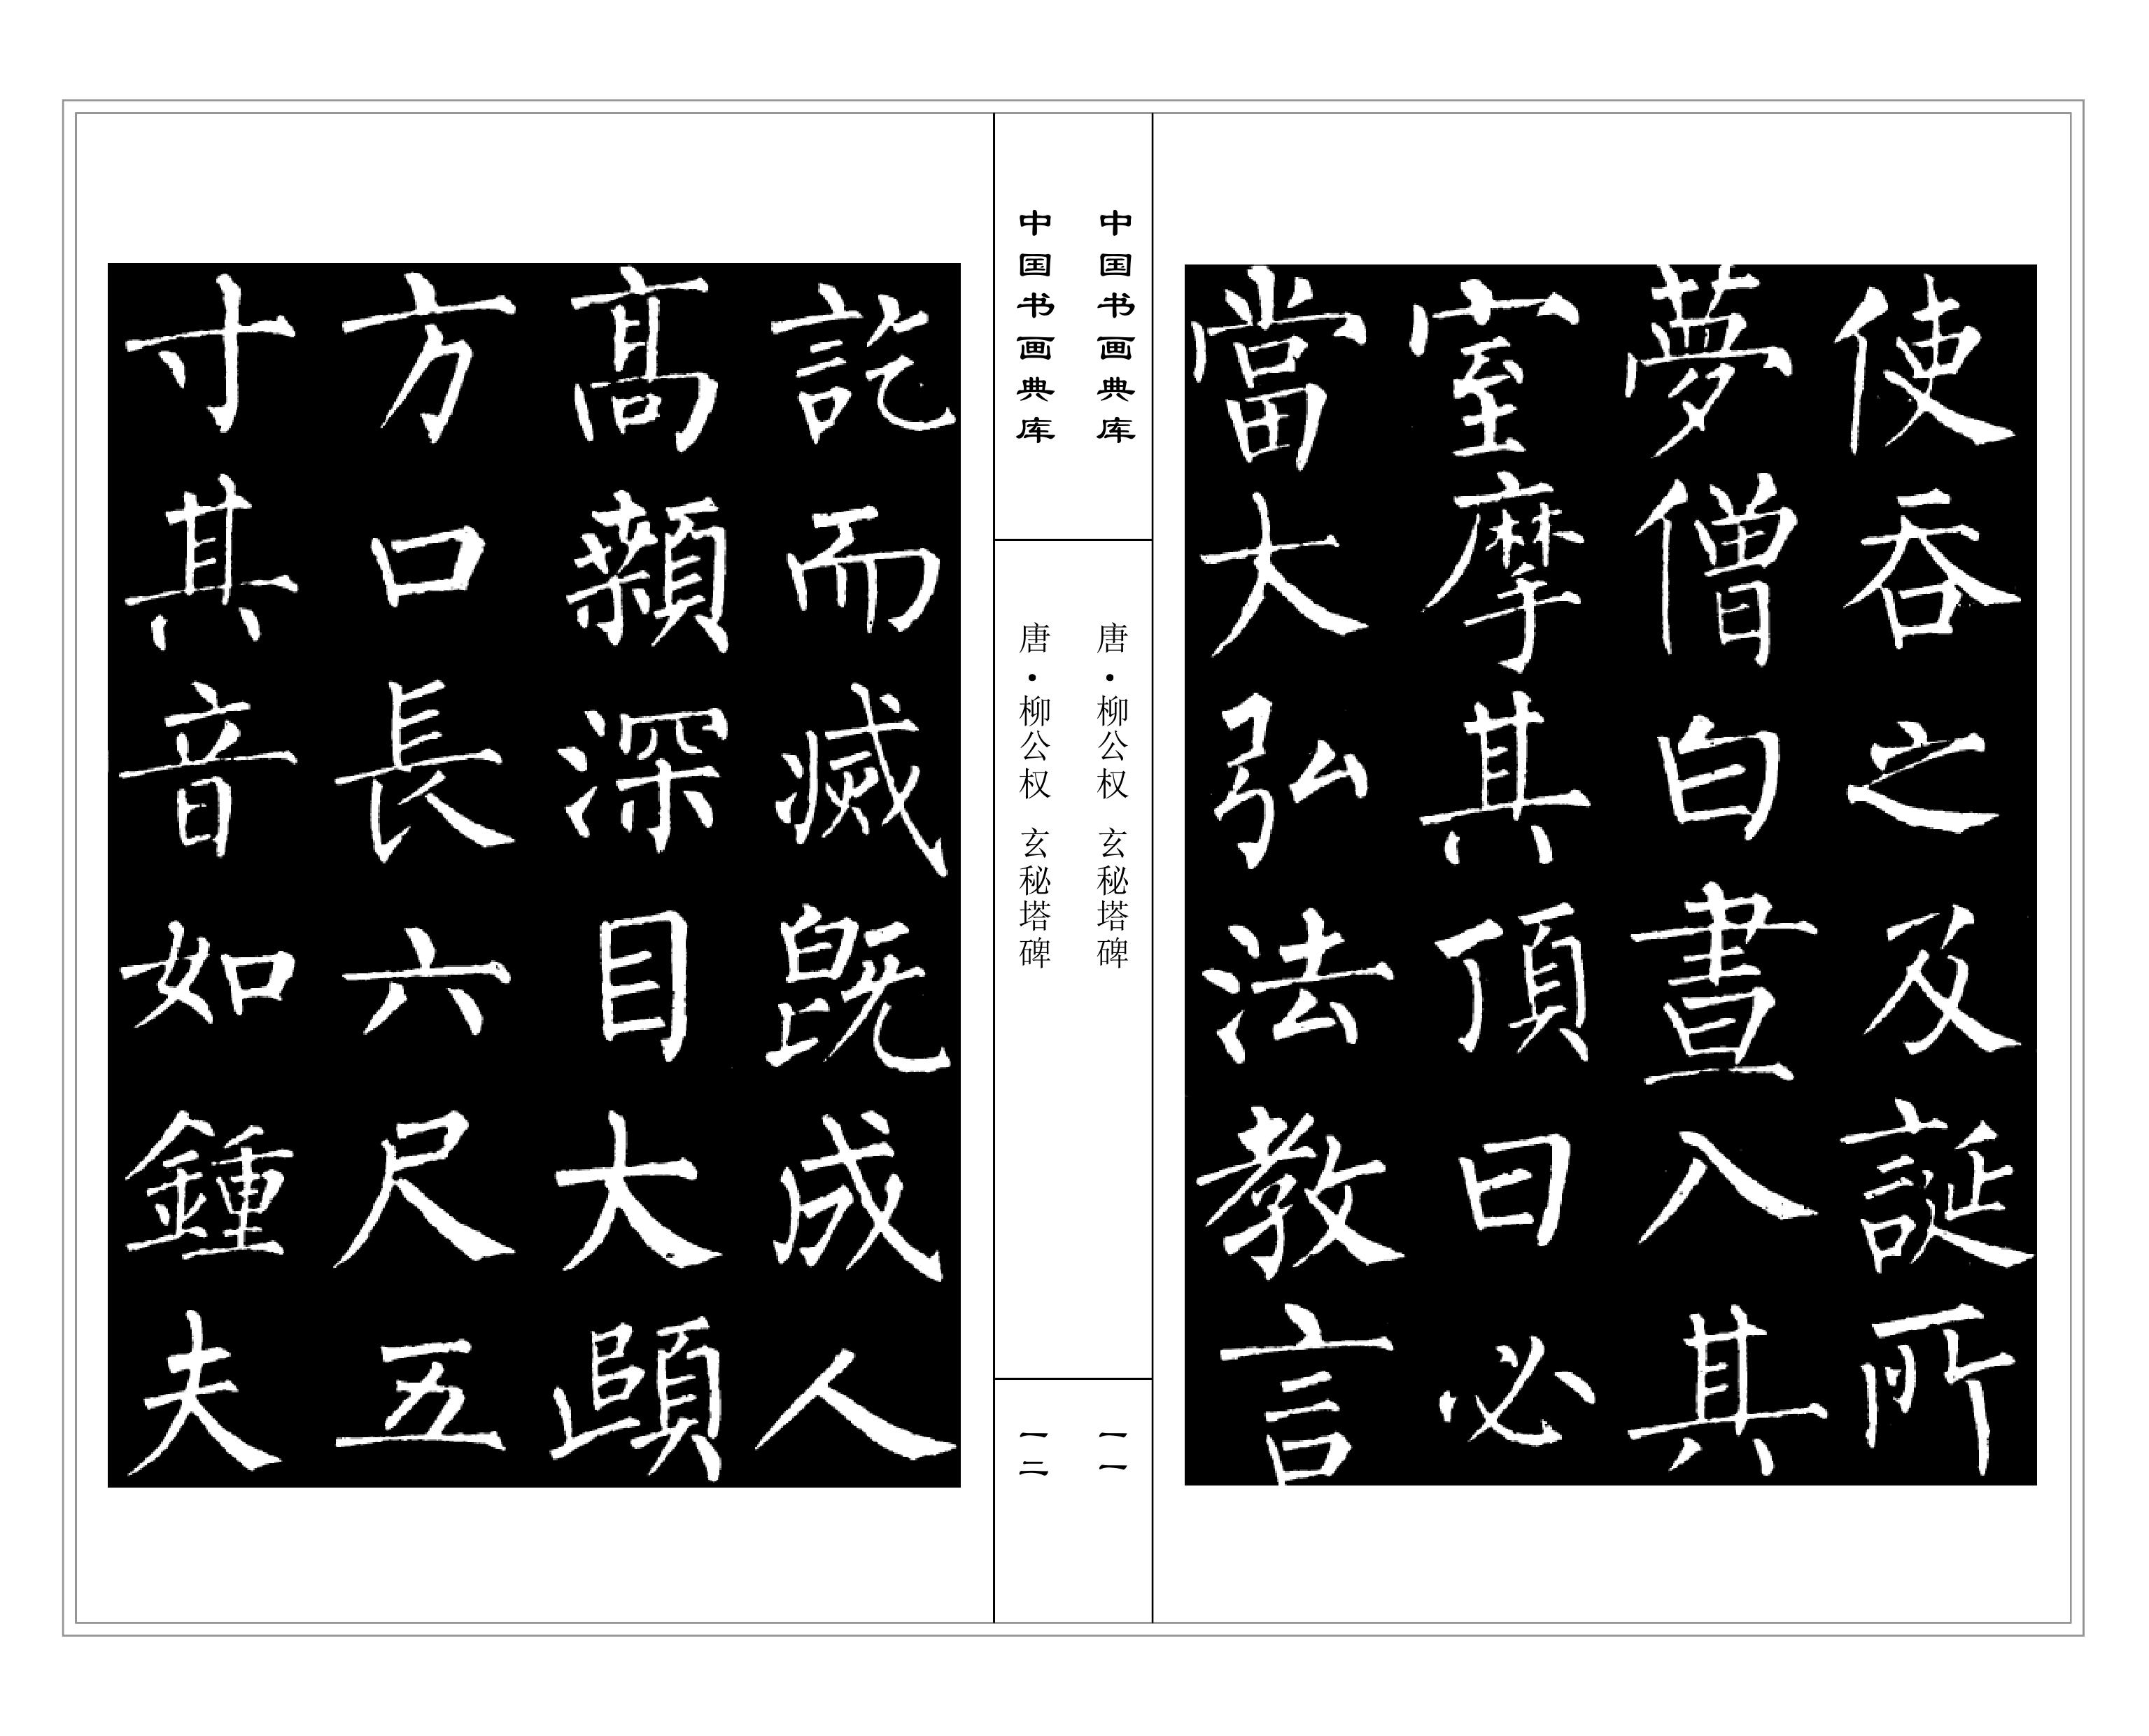 使吞之及誕所
夢僧白晝入其
室摩其頂曰必
當大弘法教言
中国书画典库
唐·柳公权 玄秘塔碑
一一
中国书画典库
唐·柳公权 玄秘塔碑
一二
訖而滅既成人
高顙深目大頤
方口長六尺五
寸其音如鍾夫